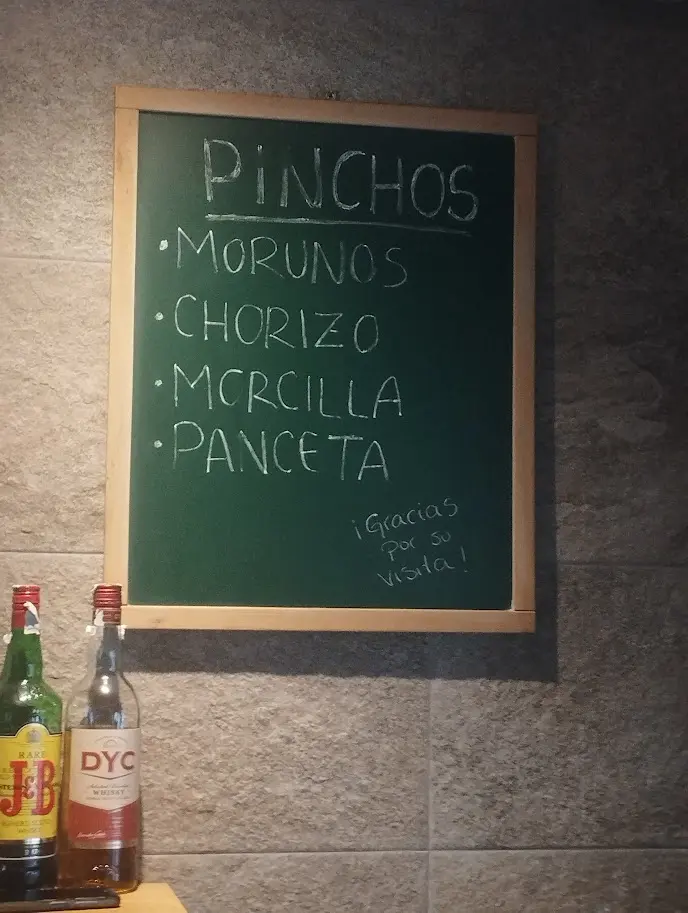 PINCHOS
• MORUNOS
• CHORIZO
• MORCILLA
• PANCETA
¡Gracias
por su
visita!
RARE
J&B
DYC
WHISKY